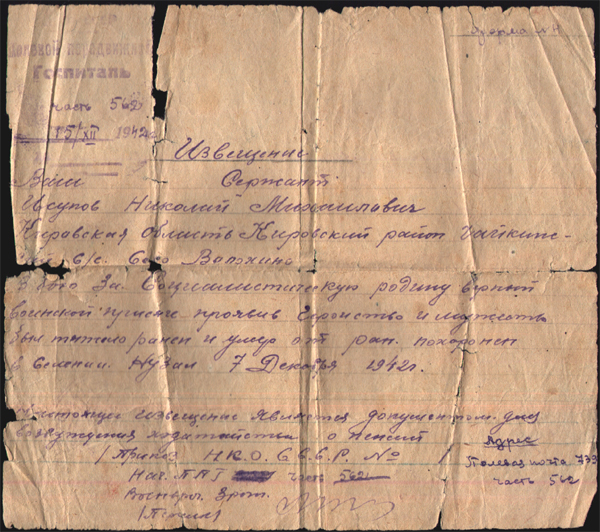 Форма № 4
Госпиталь
часть 562
15/XII 1942г.
Извещение
Ваш Сержант
Исупов Николай Михайлович
Кировская область Кировский район
с/с. Село
в бою За Социалистическую родину верный
воинской присяге проявив Геройство и мужество
был тяжело ранен и умер от ран. похоронен
в селении. Нузал 7 Декабря 1942г.
Настоящее извещение является документом для
возбуждения ходатайства о пенсии
/Приказ Н.К.О. С.С.С.Р. №
Адрес
Полевая почта
часть 562
Нач. часть 562